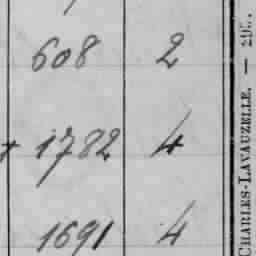 608 2
+ 1782 4
1691 4
CHARLES-LAVAUZELLE. —